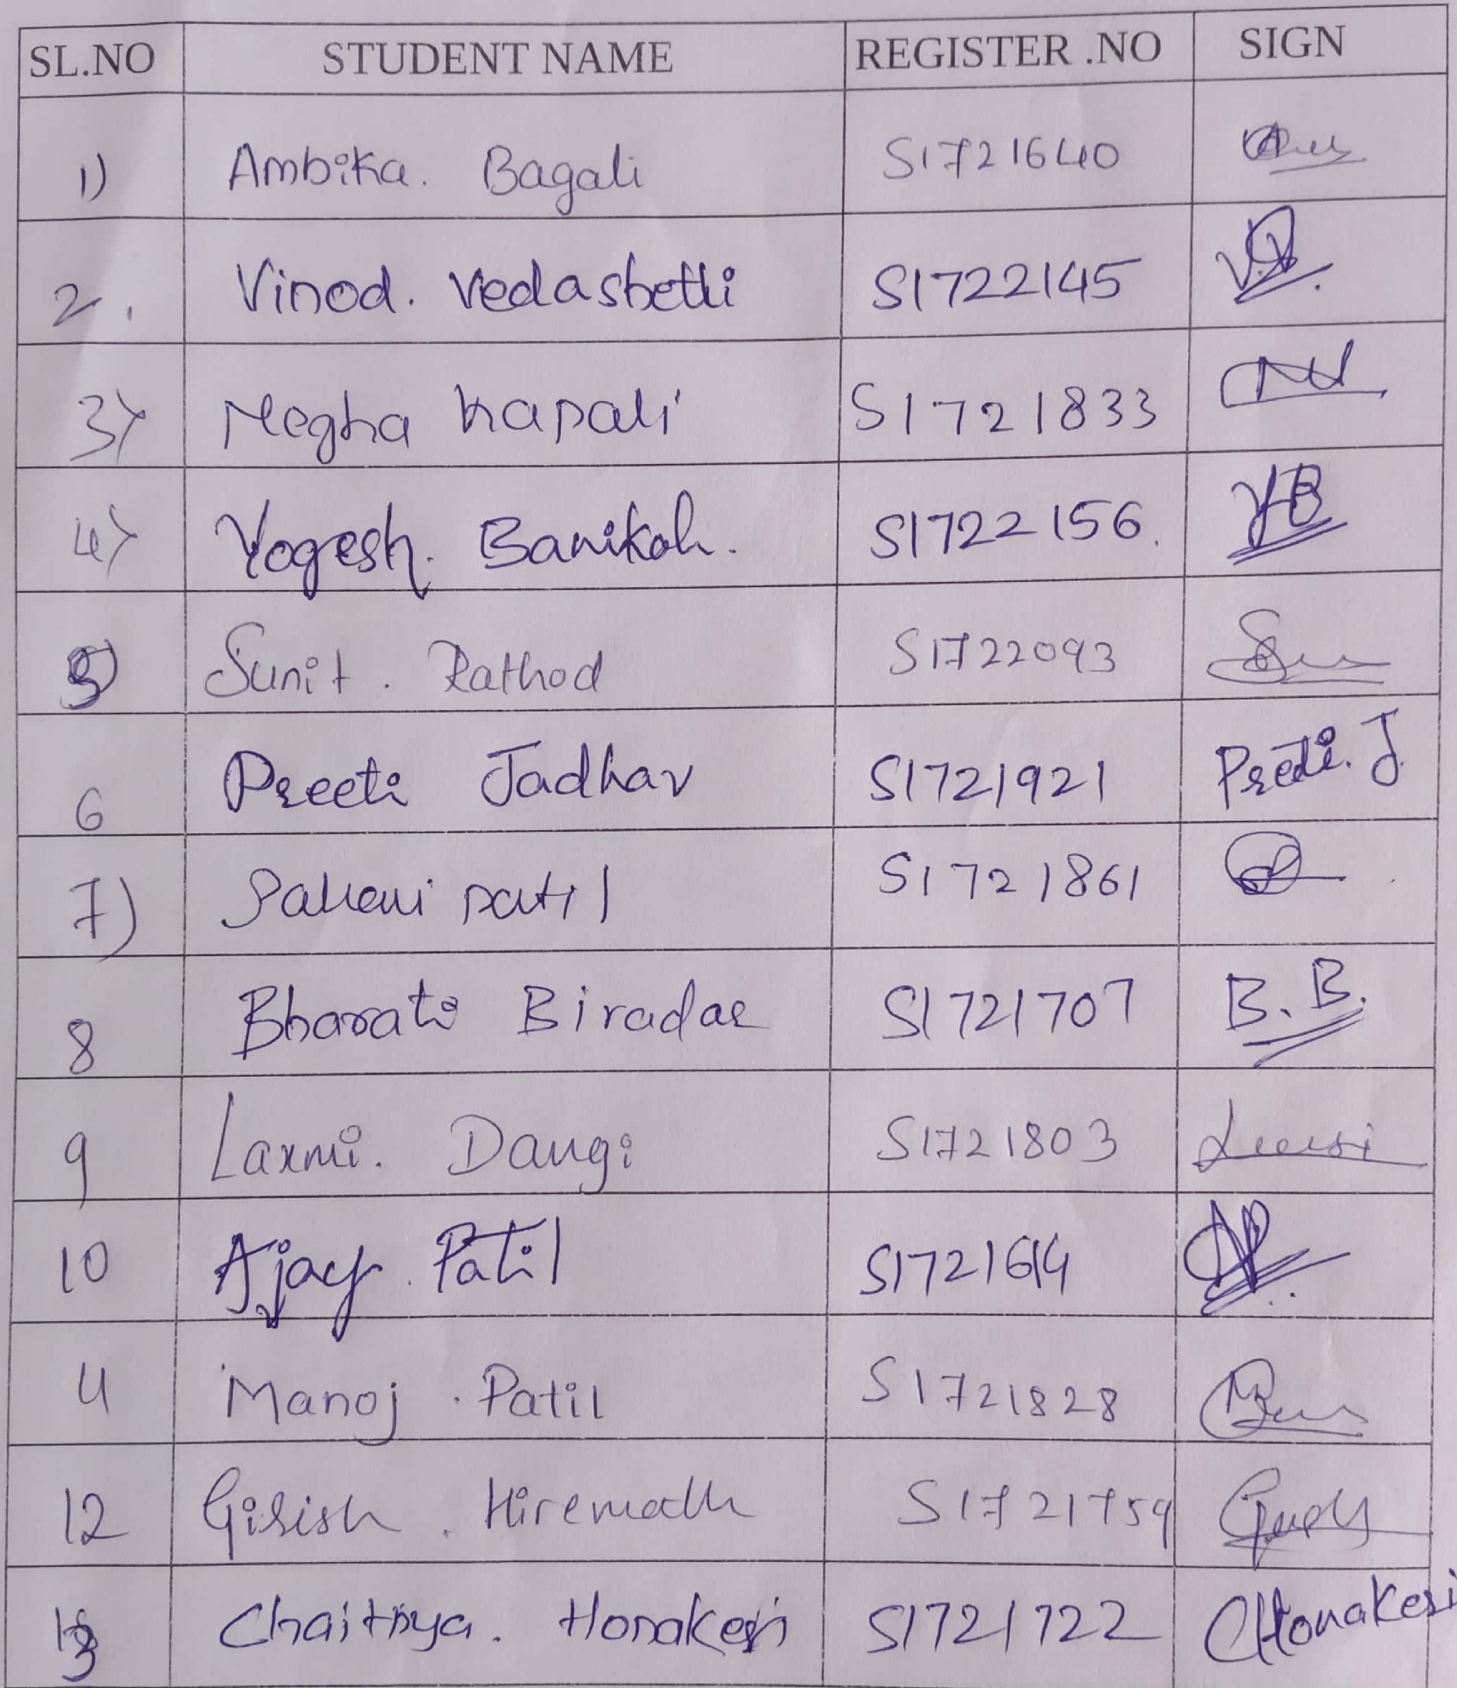 SL.NO STUDENT NAME REGISTER .NO SIGN
1) Ambika. Bagali S1721640
2. Vinod. Vedashetti S1722145
3) Megha Kapali S1721833
4) Yogesh. Banikol. S1722156.
5) Sunit. Rathod S1722093
6 Preeti Jadhav S1721921 Preeti. J.
7) Pallavi patil S1721861
8 Bharati Biradar S1721707 B.B.
9 Laxmi. Dangi S1721803
10 Ajay. Patil S1721614
11 Manoj. Patil S1721828
12 Girish. Hiremath S1721759
13 Chaitnya. Honakeri S1721722 CHonakeri